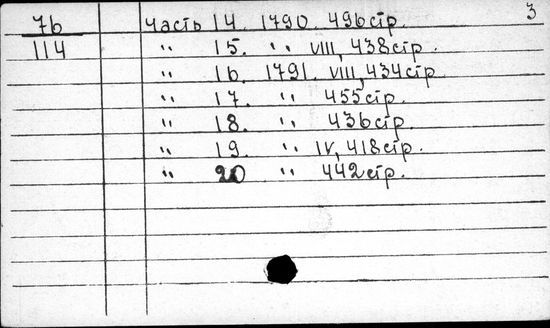 3
76 часть 14. 1790. 496стр.
114 " 15. " VIII, 438стр.
" 16. 1791. VIII, 434стр.
" 17. " 455стр.
" 18. " 436стр.
" 19. " IV, 418стр.
" 20 " 442стр.